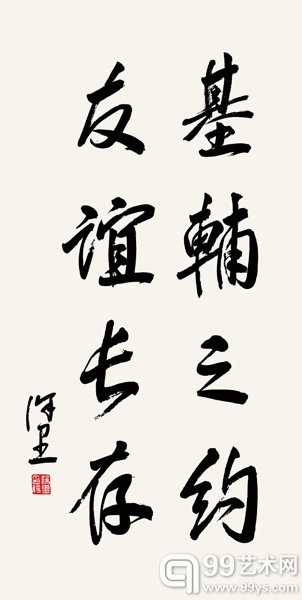 基輔之約
友谊长存
99艺术网
www.99ys.com